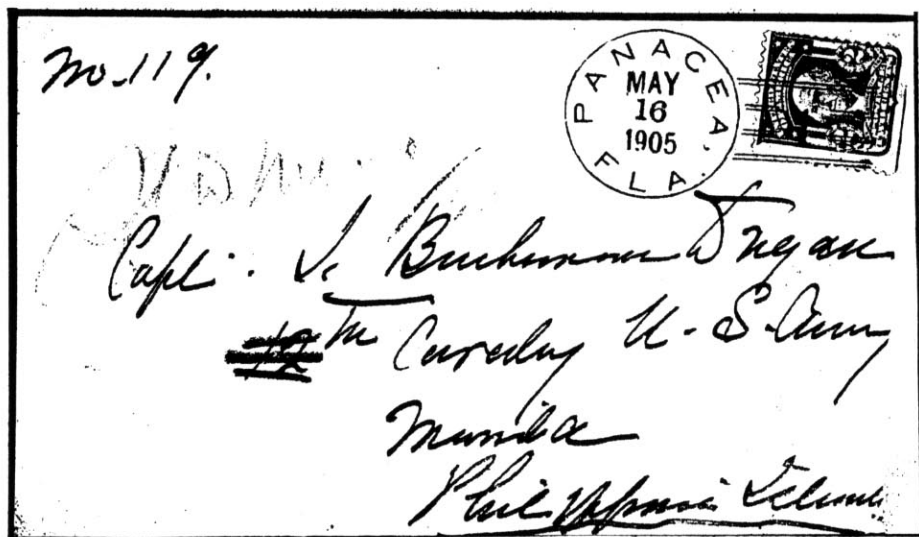 No. 119.
PANACEA,
MAY
16
1905
FLA.
Capt. Buchanan
Cavalry U. S. Army
Manila
Philippine Islands